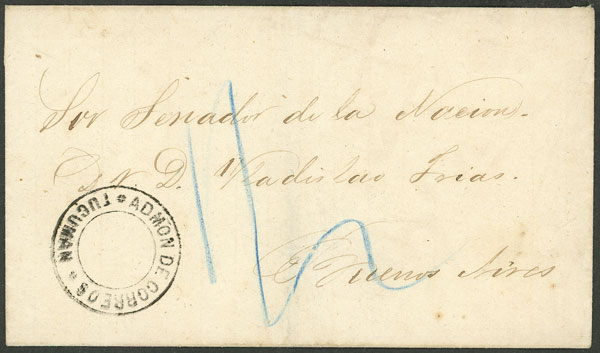 Sor Senador de la Nacion.
D. Uladislao Frias.
Buenos Aires
ADMON DE CORREOS * TUCUMAN *